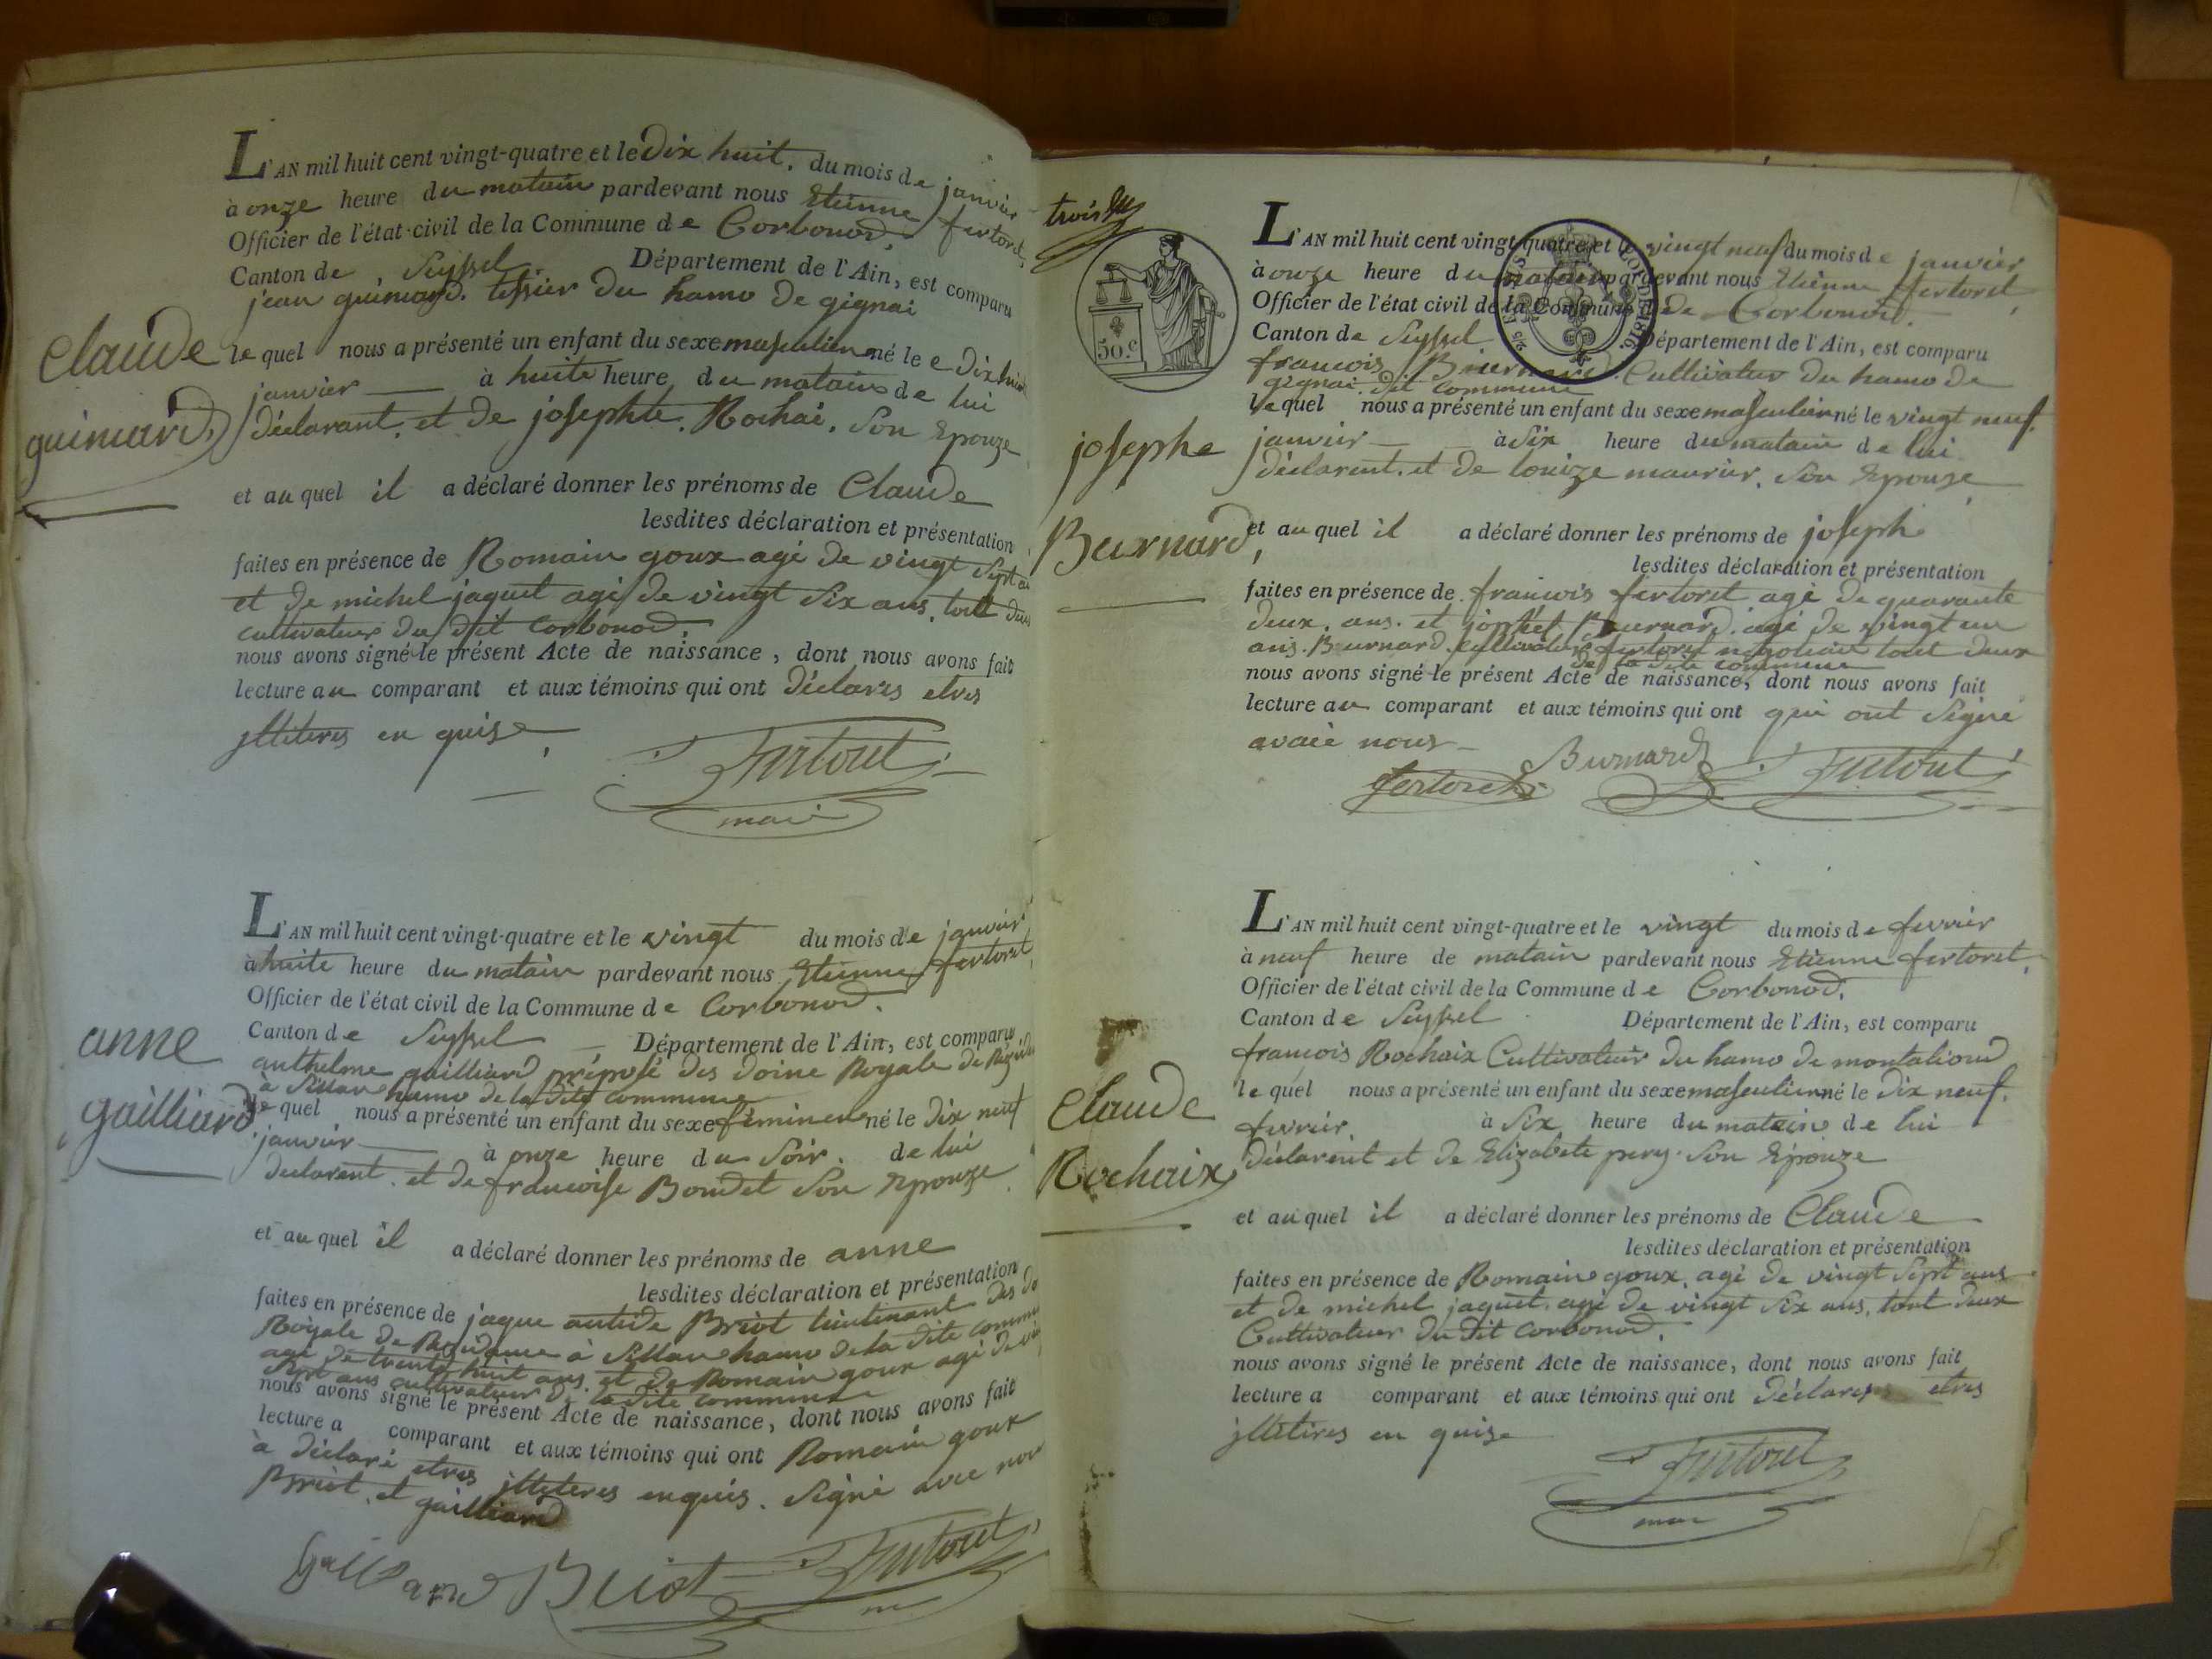 L'AN mil huit cent vingt-quatre et le Dix huit. du mois de janvier
à onze heure du matain pardevant nous Etienne fertoret,
Officier de l'état-civil de la Commune de Corbonod.
Canton de Seyssel Département de l'Ain, est comparu
jean guimard. tissier du hamo de gignai
le quel nous a présenté un enfant du sexe masculien né le Dix huit
janvier à huite heure du matain de lui
déclarant. et de josephte. Rochai. son Epouze
Claude
guimard.
et au quel il a déclaré donner les prénoms de Claude
lesdites déclaration et présentation
faites en présence de Romain goux agé de vingt sept
et de michel jaquet agé de vingt six ans. tout
cultivateur du dit Corbonod.
nous avons signé le présent Acte de naissance, dont nous avons fait
lecture au comparant et aux témoins qui ont déclarés etres
jlliteres en quise
Fertoret
maire
L'AN mil huit cent vingt-quatre et le vingt du mois de janvier
à huite heure du matain pardevant nous Etienne fertoret
Officier de l'état civil de la Commune de Corbonod.
Canton de Seyssel Département de l'Ain, est comparu
anthelme gailliard préposé des doine Royale de
à Sillan hamo de la dite commune
le quel nous a présenté un enfant du sexe féminene né le Dix neuf
janvier à onze heure du soir. de lui
declarent. et de francoise Boudet son Epouze
anne
gailliard
et au quel il a déclaré donner les prénoms de anne
lesdites déclaration et présentation
faites en présence de jaque antide Briot lieutenant des
Royale de à Sillan hamo de la dite
agé de trente huit ans. et de Romain goux agé de
sept ans cultivateur de la dite commune
nous avons signé le présent Acte de naissance, dont nous avons fait
lecture a comparant et aux témoins qui ont Romain goux
à déclaré etres jlliteres enquis. signé avec
Briot. et gailliard
Galliard Briot Fertoret
trois
50.c
L'AN mil huit cent vingt-quatre et le vingt neuf du mois de janvier
à onze heure du matain pardevant nous Etienne fertoret,
Officier de l'état civil de la Commune de Corbonod.
Canton de Seyssel Département de l'Ain, est comparu
francois Burnard. Cultivateur du hamo de
gignai. dit commune
le quel nous a présenté un enfant du sexe masculien né le vingt neuf.
janvier à six heure du matain de lui
déclarent. et de louize maurier. son Epouze
LOI DE 1816.
josephe
Burnard,
et au quel il a déclaré donner les prénoms de joseph
lesdites déclaration et présentation
faites en présence de francois fertoret agé de quarante
deux. ans. et Burnard. agé de vingt un
ans. Burnard. cultivateur fertoret tout deux
de la dite commune
nous avons signé le présent Acte de naissance, dont nous avons fait
lecture au comparant et aux témoins qui ont qui ont signé
avaic nous
fertoret Burnard Fertoret
L'AN mil huit cent vingt-quatre et le vingt du mois de fevrier
à neuf heure de matain pardevant nous Etienne fertoret,
Officier de l'état civil de la Commune de Corbonod.
Canton de Seyssel Département de l'Ain, est comparu
francois Rochaix Cultivateur du hamo de montaliond
le quel nous a présenté un enfant du sexe masculien né le Dix neuf.
fevrier. à six heure du matain de lui
déclarent et de Elizabete pery. son Epouze
Claude
Rochaix
et au quel il a déclaré donner les prénoms de Claude
lesdites déclaration et présentation
faites en présence de Romain goux. agé de vingt sept ans
et de michel jaquet. agé de vingt six ans. tout deux
Cultivateur du dit Corbonod.
nous avons signé le présent Acte de naissance, dont nous avons fait
lecture a comparant et aux témoins qui ont déclarés etres
jlliteres en quise
Fertoret
maire